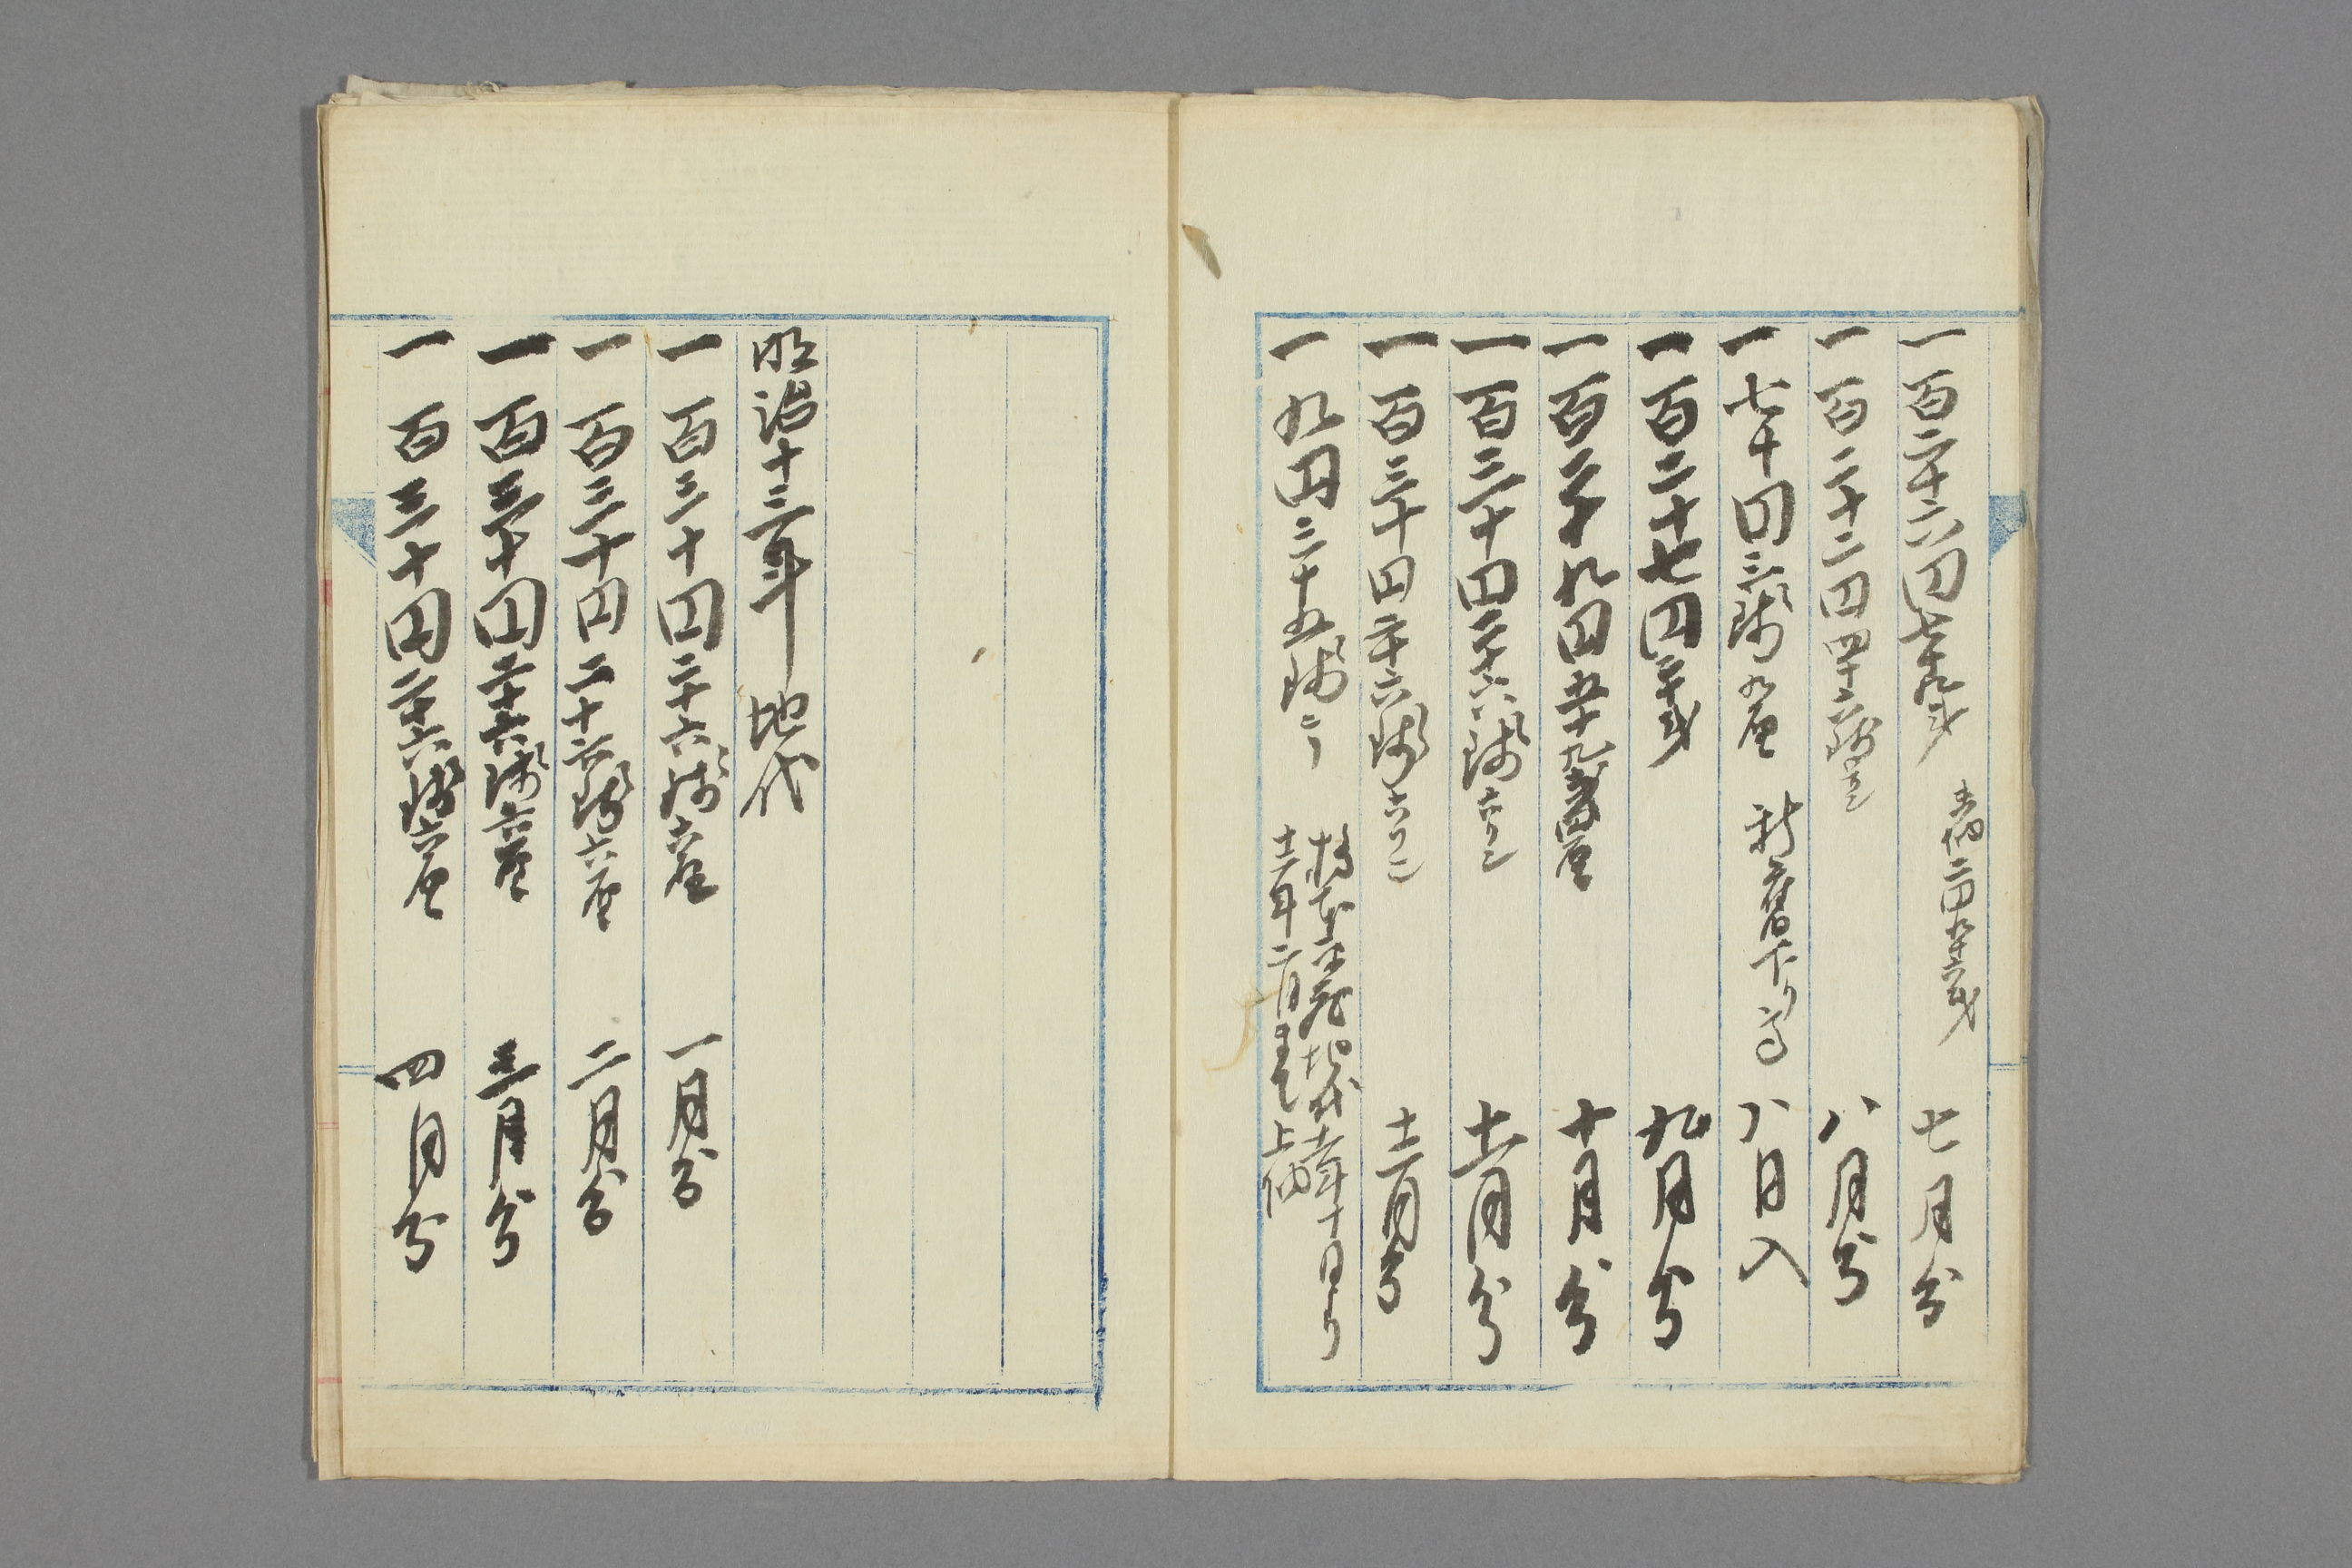 一 百二十六円七十九戋 二円九十六戋 七月分
一 百二十二円四十六銭 八月分
一 七十円三銭九厘 八日入
一 百二十七円二十戋 九月分
一 百二十九円五十九戋四厘 十月分
一 百三十円二十六銭六リン 十一月分
一 百三十円二十六銭六リン 十二月分
一 九円三十五銭 地代十一年十月ヨリ
十二年二月まて上納
明治十三年 地代
一 百三十円二十六銭六厘 一月分
一 百三十円二十六銭六厘 二月分
一 百三十円二十六銭六厘 三月分
一 百三十円二十六銭六厘 四月分